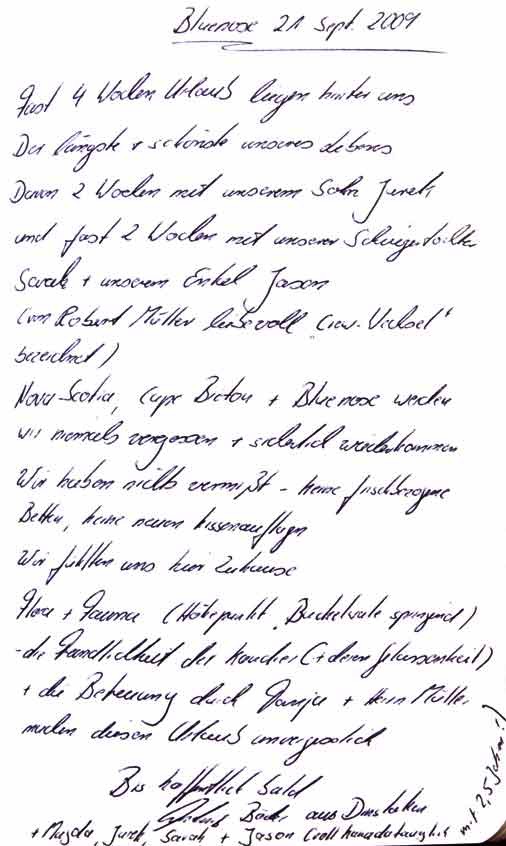 Bluenose 21 Sept. 2009
Fast 4 Wochen Urlaub liegen hinter uns
Der längste + schönste unseres Lebens
Davon 2 Wochen mit unserem Sohn Jurek
und fast 2 Wochen mit unserer Schwiegertochter
Sarah + unserem Enkel Jason
(von Robert Müller liebevoll "
bezeichnet)
Nova-Scotia, Cape Breton + Bluenose werden
wir niemals vergessen + sicherlich wiederkommen
Wir haben nichts vermißt - keine frischbezogene
Betten, keine neuen Kissenauflagen
Wir fühlten uns hier Zuhause
Flora + Fauna (Höhepunkt Buckelwale springend)
- die Freundlichkeit der Kanadier (+ deren Gelassenheit)
+ die Betreuung durch Tanja + Herrn Müller
machen diesen Urlaub unvergesslich
Bis hoffentlich bald
Böck aus Dinslaken
+ Magda, Jurek, Sarah + Jason (voll kanadatauglich mit 2,5 Jahren!)